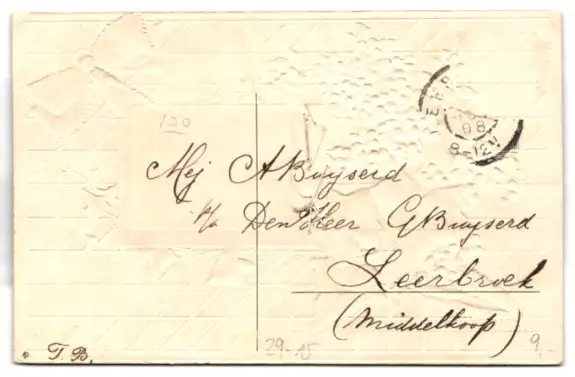 150
LEER
08
8-12V
Mej A Buyserd
p/a Den Heer G Buyserd
Leerbroek
(Middelkoop)
T. B.
29-15
9.-